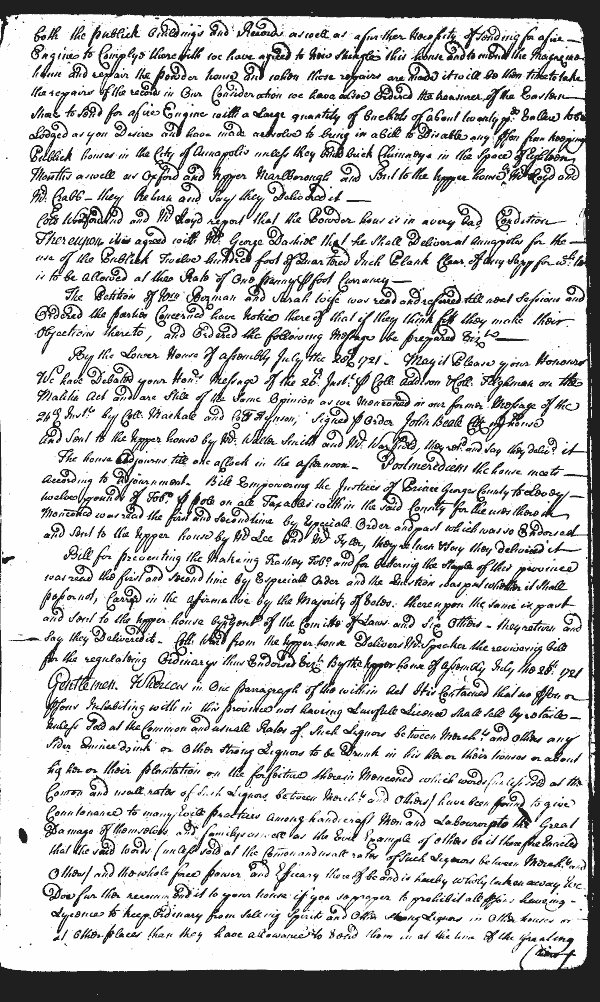 both the publick Buildings and Records as well as a further Necessity of Sending for a fire
Engine to Comply therewith we have agreed to new shingle this house and to mend the Magazine
house and repair the powder house and when those repairs are made it will be then time to take
the repairs of the record in Our Consideration we have also Ordered the treasurer of the Eastern
Shoar to Send for a fire Engine with a Large quantity of buckets of about twenty
Lodged as you Desire and have made a resolve to bring in a bill to Disable any pson from keeping
Publick houses in the City of Annapolis unless they build brick Chimneys in the Space of Eighteen
Months as well as Oxford and Upper Marlborough and Sent to the upper house by Mr. Loyd and
Mr. Crabb - they Return and Say they Delivered it
Coll Woodward and Mr. Loyd report that the Powder hous is in a very bad Condition
Thereupon it is agreed with Mr. George Dashiel that he Shall Deliver at Annapolis for the
use of the Publick Twelve hundred foot of Quartered Inch Plank Clear of any Sapp for wch. he
is to be allowed at the Rate of One penny P foot Currancy
The Petition of Wm. Borman and Sarah wife was read and referred till next Sessions and
Ordered the parties Concerned have notice there of that if they think fitt they make their
Objections thereto, and Ordered the following Message be prepared Vizt.
By the Lower House of Assembly July the 26th 1721 - May it Please your Honours
We have Debated your Honrs. Message of the 26th Inst. P Coll. Addison & Coll. Tilghman on the
Malitia Act and are Still of the Same Opinion as we Menconed in our former Message of the
24th Inst. by Coll. Mackall and Signed P Order John Beale Clk of house
And Sent to the upper house by Mr. Walter Smith and Mr. Warfield, they ret. and Say they delivd. it
The house Adjourns till one a Clock in the afternoon - Postmeredium the house meets
According to Adjournment - Bill Empowering the Justices of Prince Georges County to Leavy
twelve pounds of Tobo. P pole on all Taxables with in the said County for the uses therein
Menconed was read the first and second time by Especiall Order and past which was so Endorsed
and Sent to the Upper house by Mr. Lee and Mr. Tyler, they return & Say they delivered it
Bill for preventing the Makeing Trashey Tobo. and for Ordering the Staple of this province
was read the first and Second time by Especiall Order and the Question was put whether it Shall
pass or not, Carried in the affirmative by the Majority of Votes. thereupon the same is past
and sent to the upper house by Gent of the Comitte of Laws and Six Others - they return and
Say they Delivered it - Coll. Ward from the upper house Delivers Mr. Speaker the reviveing bill
for the regulateing Ordinarys thus Endorsed Vizt. By the upper house of Assembly July the 26th. 1721
Gentlemen. Whereas in One Paragraph of the within Act It is Contained that no pson or
psons Inhabiting with in this province not haveing Lawfull Licence Shall sell by retaile
unless Sold at the Common and usuall Rates of Such Liquors between Mercht. and Others any
Sider Quince drink or Other Strong Liquors to be Drunk in his her or their houses or about
his her or their Plantation on the forfeiture therein Menconed which words (unless sold at the
Comon and usuall rates of Such Liquors between Mercht. and Others) have been found to give
Countenance to many evile practices Among handicraft Men and Labourers to the Great
Damage of themselves and familys as well as the Evil Example of others be it therefore Enacted
that the said words (unless sold at the Comon and usuall rates of Such Liquors between Mercht. and
Others) and the whole force power and Efficacy there of be and is hereby wholy taken away We
Doe further recommend it to your house if you se proper to prohibit all psons haveing
Lycences to keep Ordinary from Selling Spirits and Other strong Liquors in Other houses or
at Other places than they have allowance to vend them in at the time of the Granting